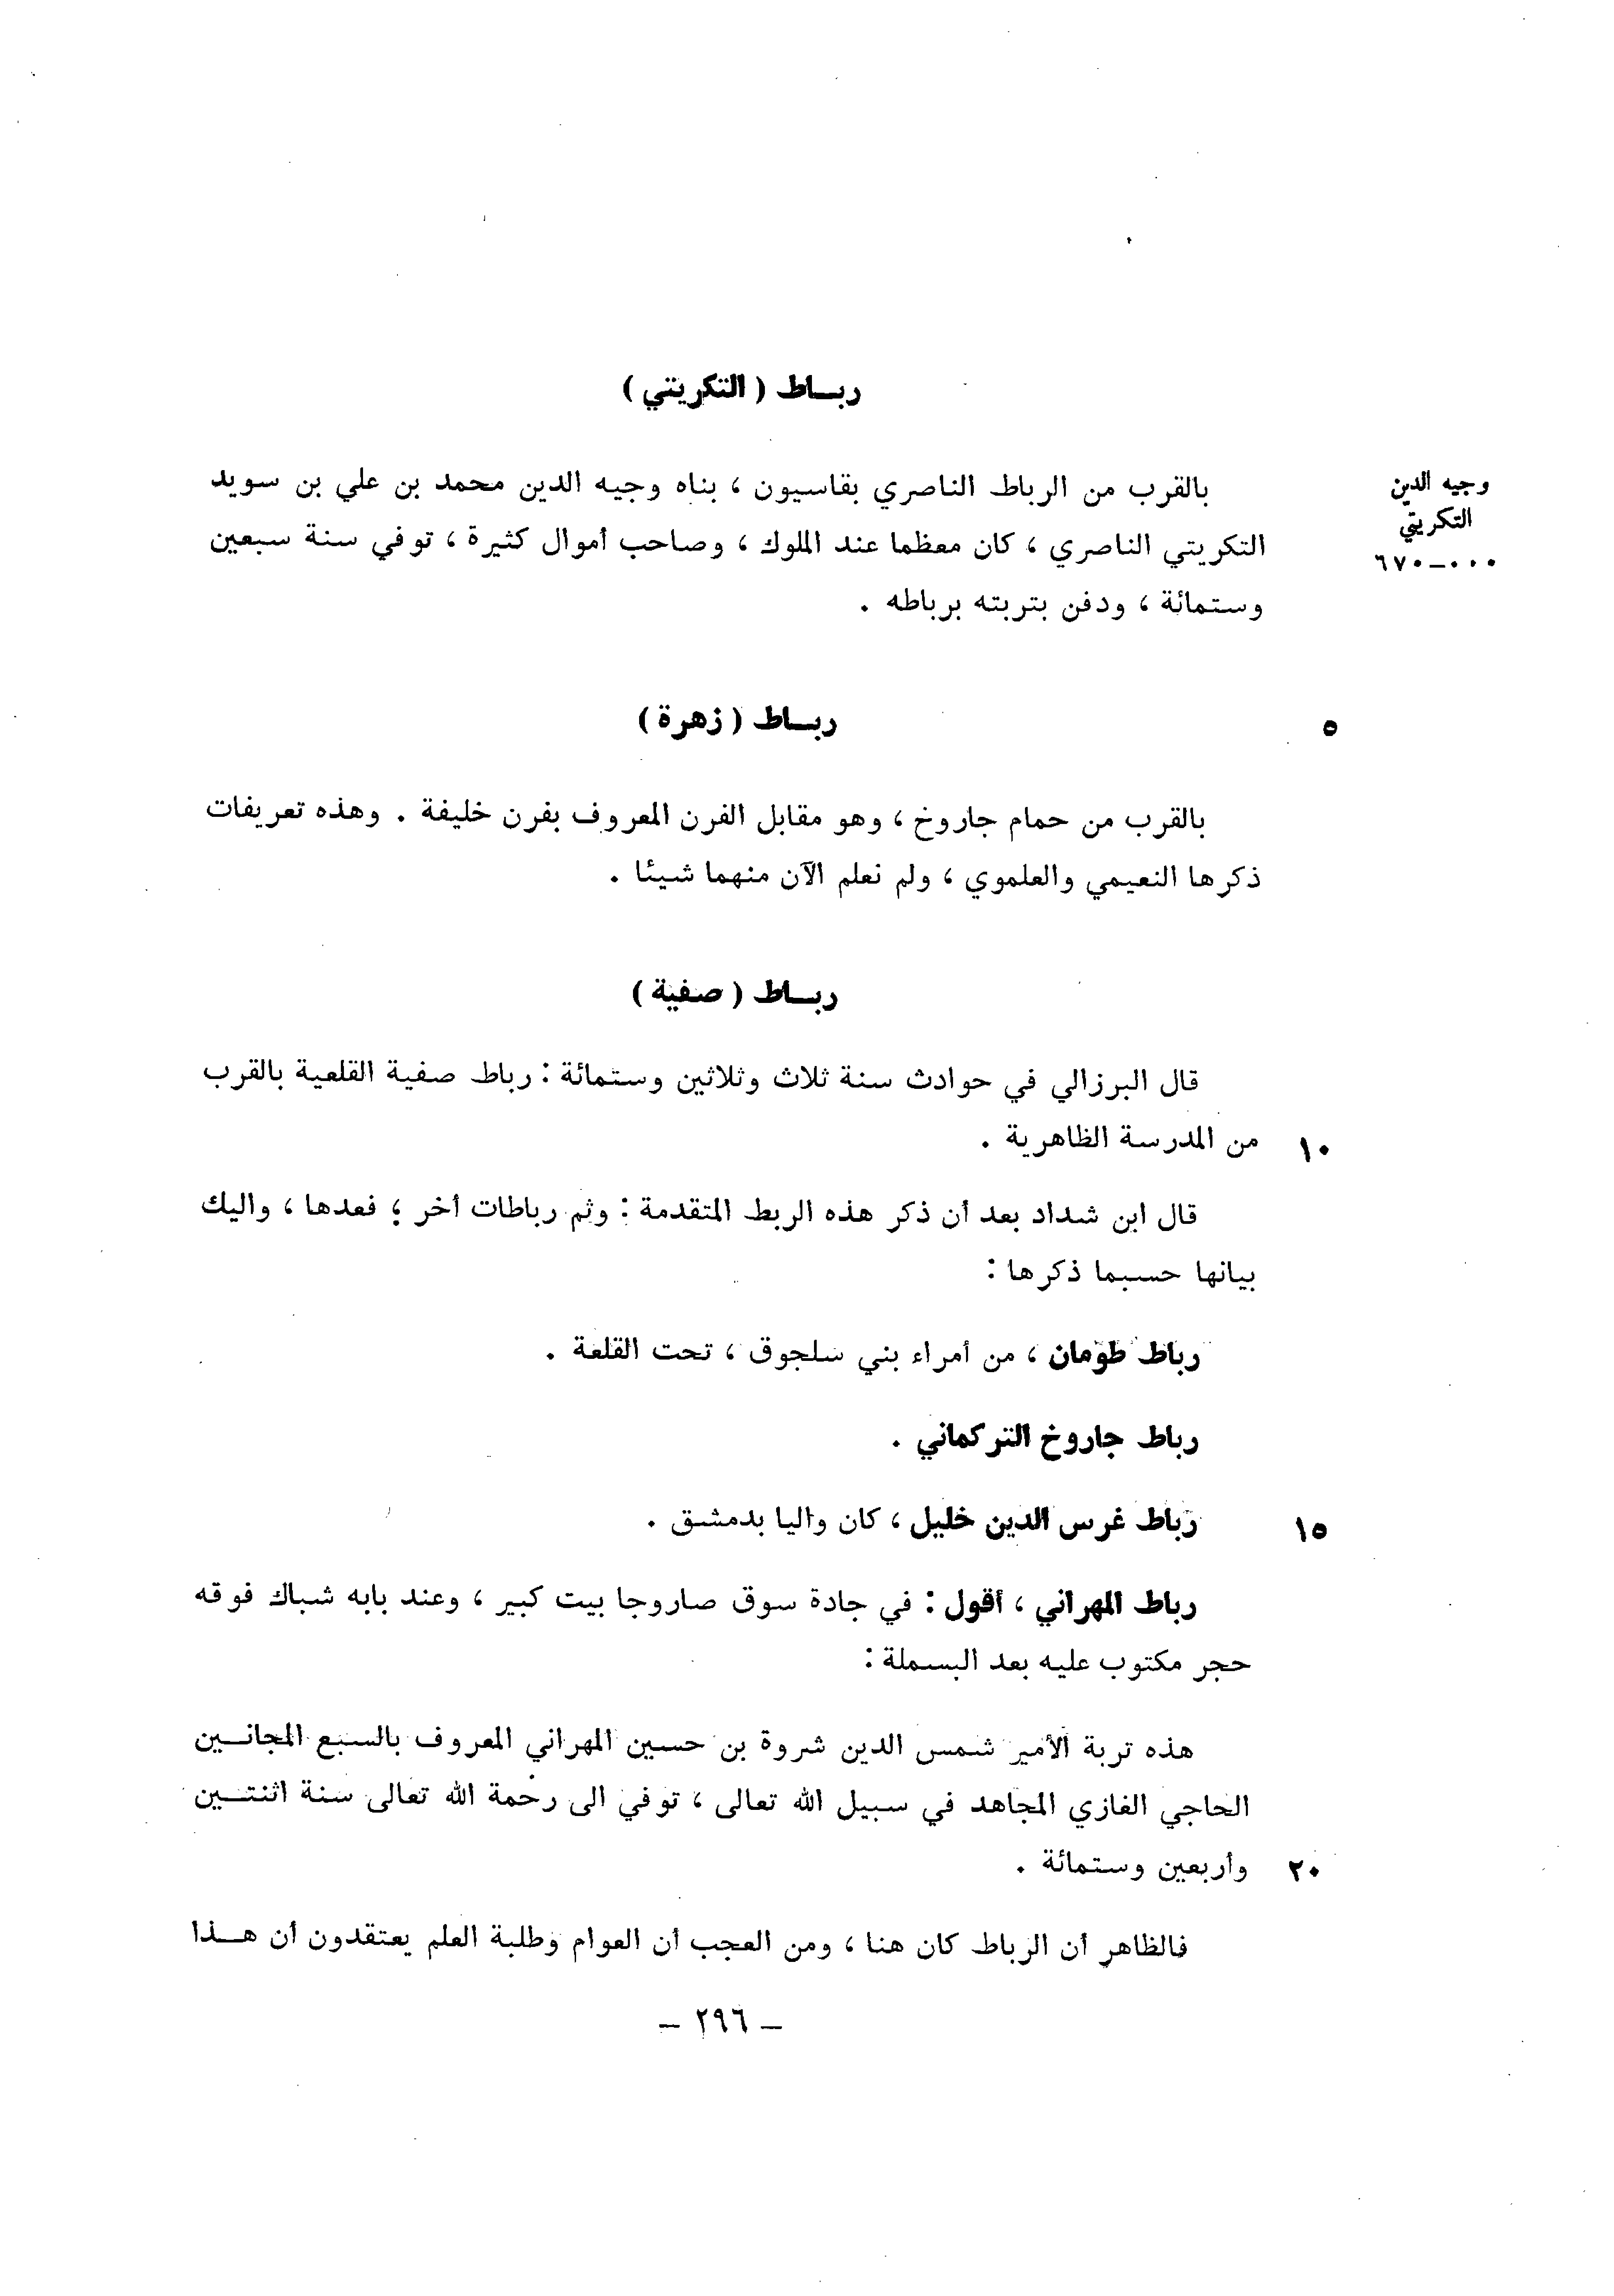 ربـــاط ( التكريتي )
وجيه الدين
التكريتي
٠٠٠ـ٦٧٠
بالقرب من الرباط الناصري بقاسيون ، بناه وجيه الدين محمد بن علي بن سويد
التكريتي الناصري ، كان معظما عند الملوك ، وصاحب أموال كثيرة ، توفي سنة سبعين
وستمائة ، ودفن بتربته برباطه .
٥ ربـــاط ( زهرة )
بالقرب من حمام جاروخ ، وهو مقابل الفرن المعروف بفرن خليفة . وهذه تعريفات
ذكرها النعيمي والعلموي ، ولم نعلم الآن منهما شيئا .
ربـــاط ( صفية )
قال البرزالي في حوادث سنة ثلاث وثلاثين وستمائة : رباط صفية القلعية بالقرب
١٠ من المدرسة الظاهرية .
قال ابن شداد بعد أن ذكر هذه الربط المتقدمة : وثم رباطات أخر ؛ فعدها ، واليك
بيانها حسبما ذكرها :
رباط طومان ، من أمراء بني سلجوق ، تحت القلعة .
رباط جاروخ التركماني .
١٥ رباط غرس الدين خليل ، كان واليا بدمشق .
رباط المهراني ، أقول : في جادة سوق صاروجا بيت كبير ، وعند بابه شباك فوقه
حجر مكتوب عليه بعد البسملة :
هذه تربة الأمير شمس الدين شروة بن حسين المهراني المعروف بالسبع المجانـــين
الحاجي الغازي المجاهد في سبيل الله تعالى ، توفي الى رحمة الله تعالى سنة اثنتـــين
٢٠ وأربعين وستمائة .
فالظاهر أن الرباط كان هنا ، ومن العجب أن العوام وطلبة العلم يعتقدون أن هـــذا
ـ ٢٩٦ ـ